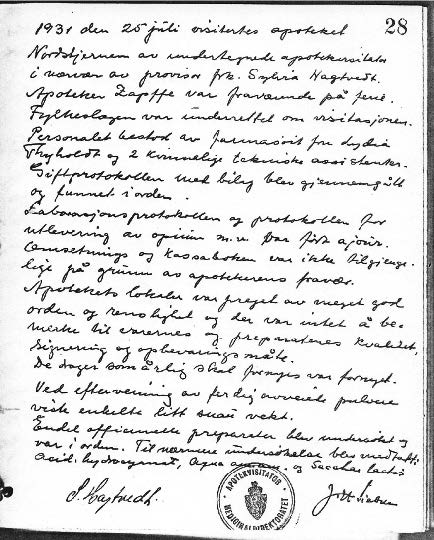 28
1931 den 25 juli visitertes apoteket
Nordstjernen av undertegnede apotekvisitator
i nærvær av provisor frk. Sylvia Hagtvedt.
Apoteker Zapffe var fraværende på ferie.
Fylkeslægen var underrettet om visitasjonen.
Personalet bestod av farmasøit fru Lydia
Thyholdt og 2 kvinnelige tekniske assistenter.
Giftprotokollen med bilag blev gjennemgått
og funnet i orden.
Laborasjonsprotokollen og protokollen for
utlevering av opium m.v. var ført ajour.
Omsetnings og kassaboken var ikke tilgjenge-
lige på grunn av apotekerens fravær.
Apotekets lokaler var preget av meget god
orden og renslighet og der var intet å be-
merke til varernes og preparaternes kvalitet,
signering og opbevaringsmåte.
De droger som årlig skal fornyes var fornyet.
Ved efterveining av ferdig avveiede pulvere
viste enkelte litt snau vekt.
Endel officinelle preparater blev undersøkt og
var i orden. Til nærmere undersøkelse blev medtatt:
acid. hydrocyanat, Aqua og Sacchar. lact.
S. Hagtvedt.
APOTEKVISITATOR
MEDICINALDIREKTORATET